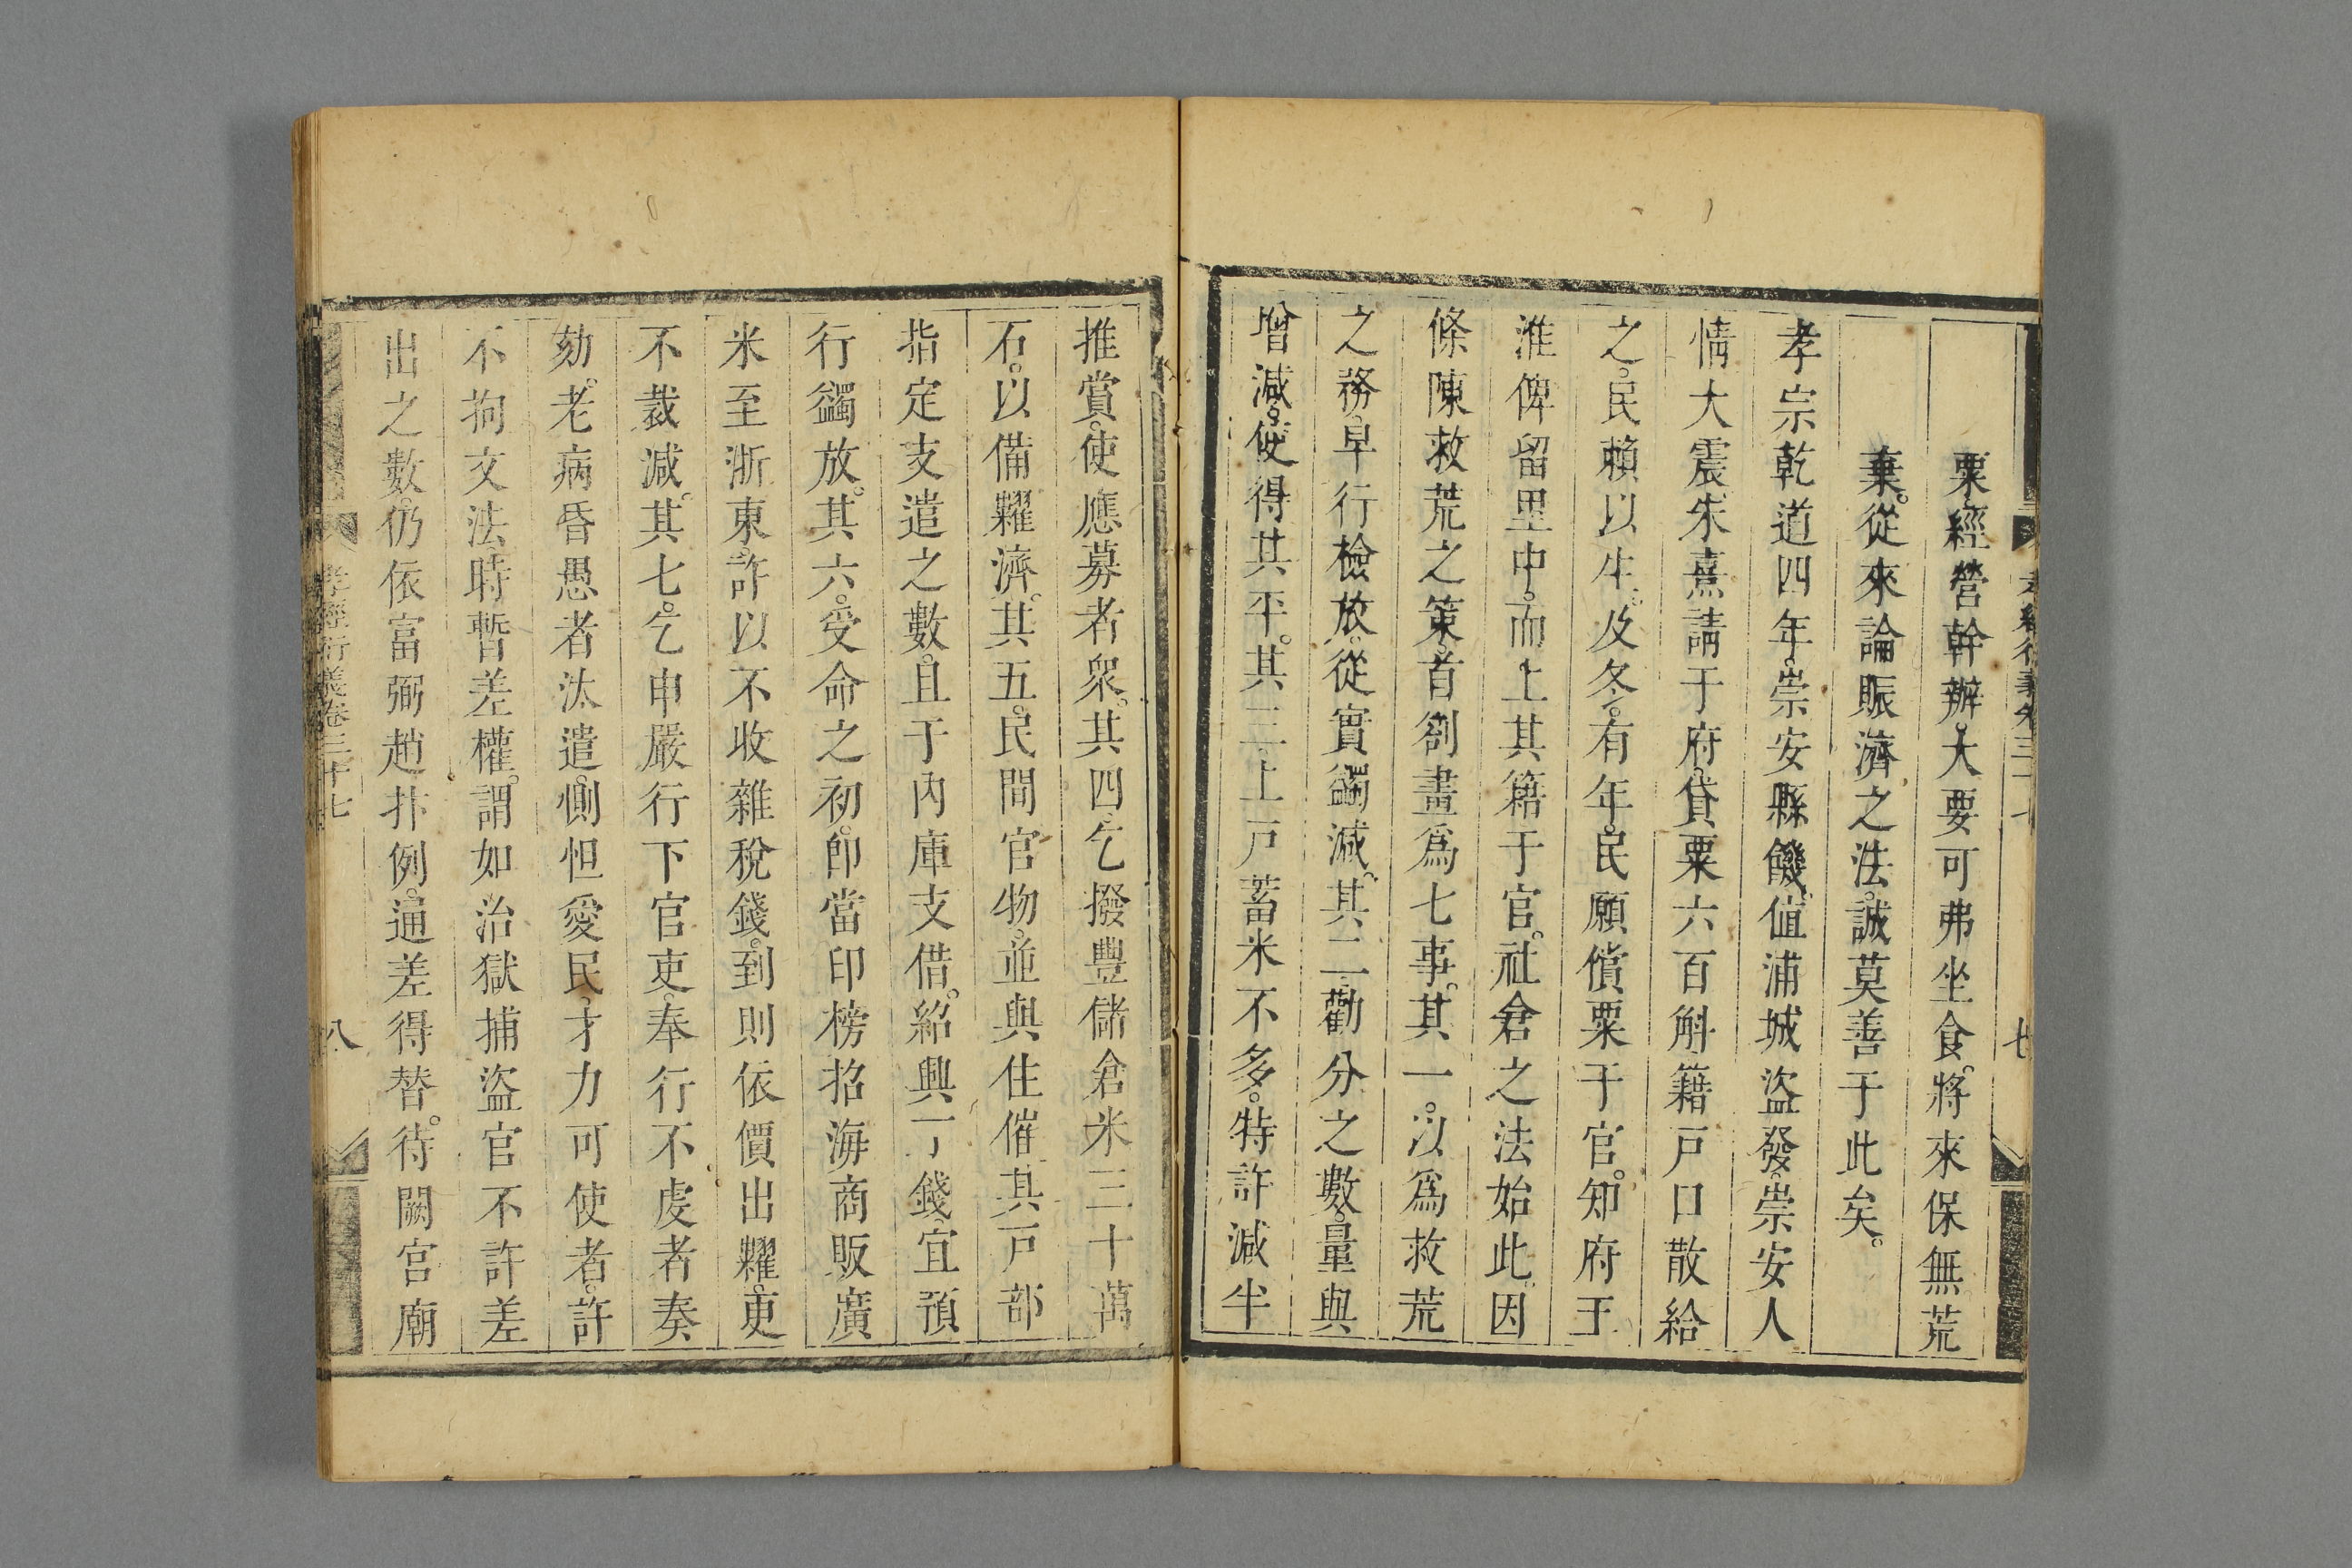 粟。經營幹辦。大要可弗坐食。將來保無荒
棄。從來論賑濟之法。誠莫善于此矣。
孝宗乾道四年。崇安縣饑。值浦城盜發。崇安人
情大震。朱熹請于府。貸粟六百斛。籍戶口散給
之。民賴以生。及冬。有年。民願償粟于官。知府王
淮俾留里中。而上其籍于官。社倉之法始此。因
條陳救荒之策。首劄畫爲七事。其一。以爲救荒
之務。早行檢放。從實蠲減。其二。勸分之數。量與
增減。使得其平。其三。上戶蓄米不多。特許減半
推賞。使應募者衆。其四。乞撥豐儲倉米三十萬
石。以備糶濟。其五。民間官物。並與住催。其戶部
指定支遣之數。且于內庫支借。紹興丁錢。宜預
行蠲放。其六。受命之初。卽當印榜招海商販廣
米至浙東。許以不收雜稅錢。到則依價出糶。更
不裁減。其七。乞申嚴行下官吏。奉行不虔者奏
劾。老病昏愚者汰遣。惻怛愛民。才力可使者。許
不拘文法。時暫差權。謂如治獄捕盜官不許差
出之數。仍依富弼趙抃例。通差得替。待闕宮廟
孝經衍義卷三十七
八